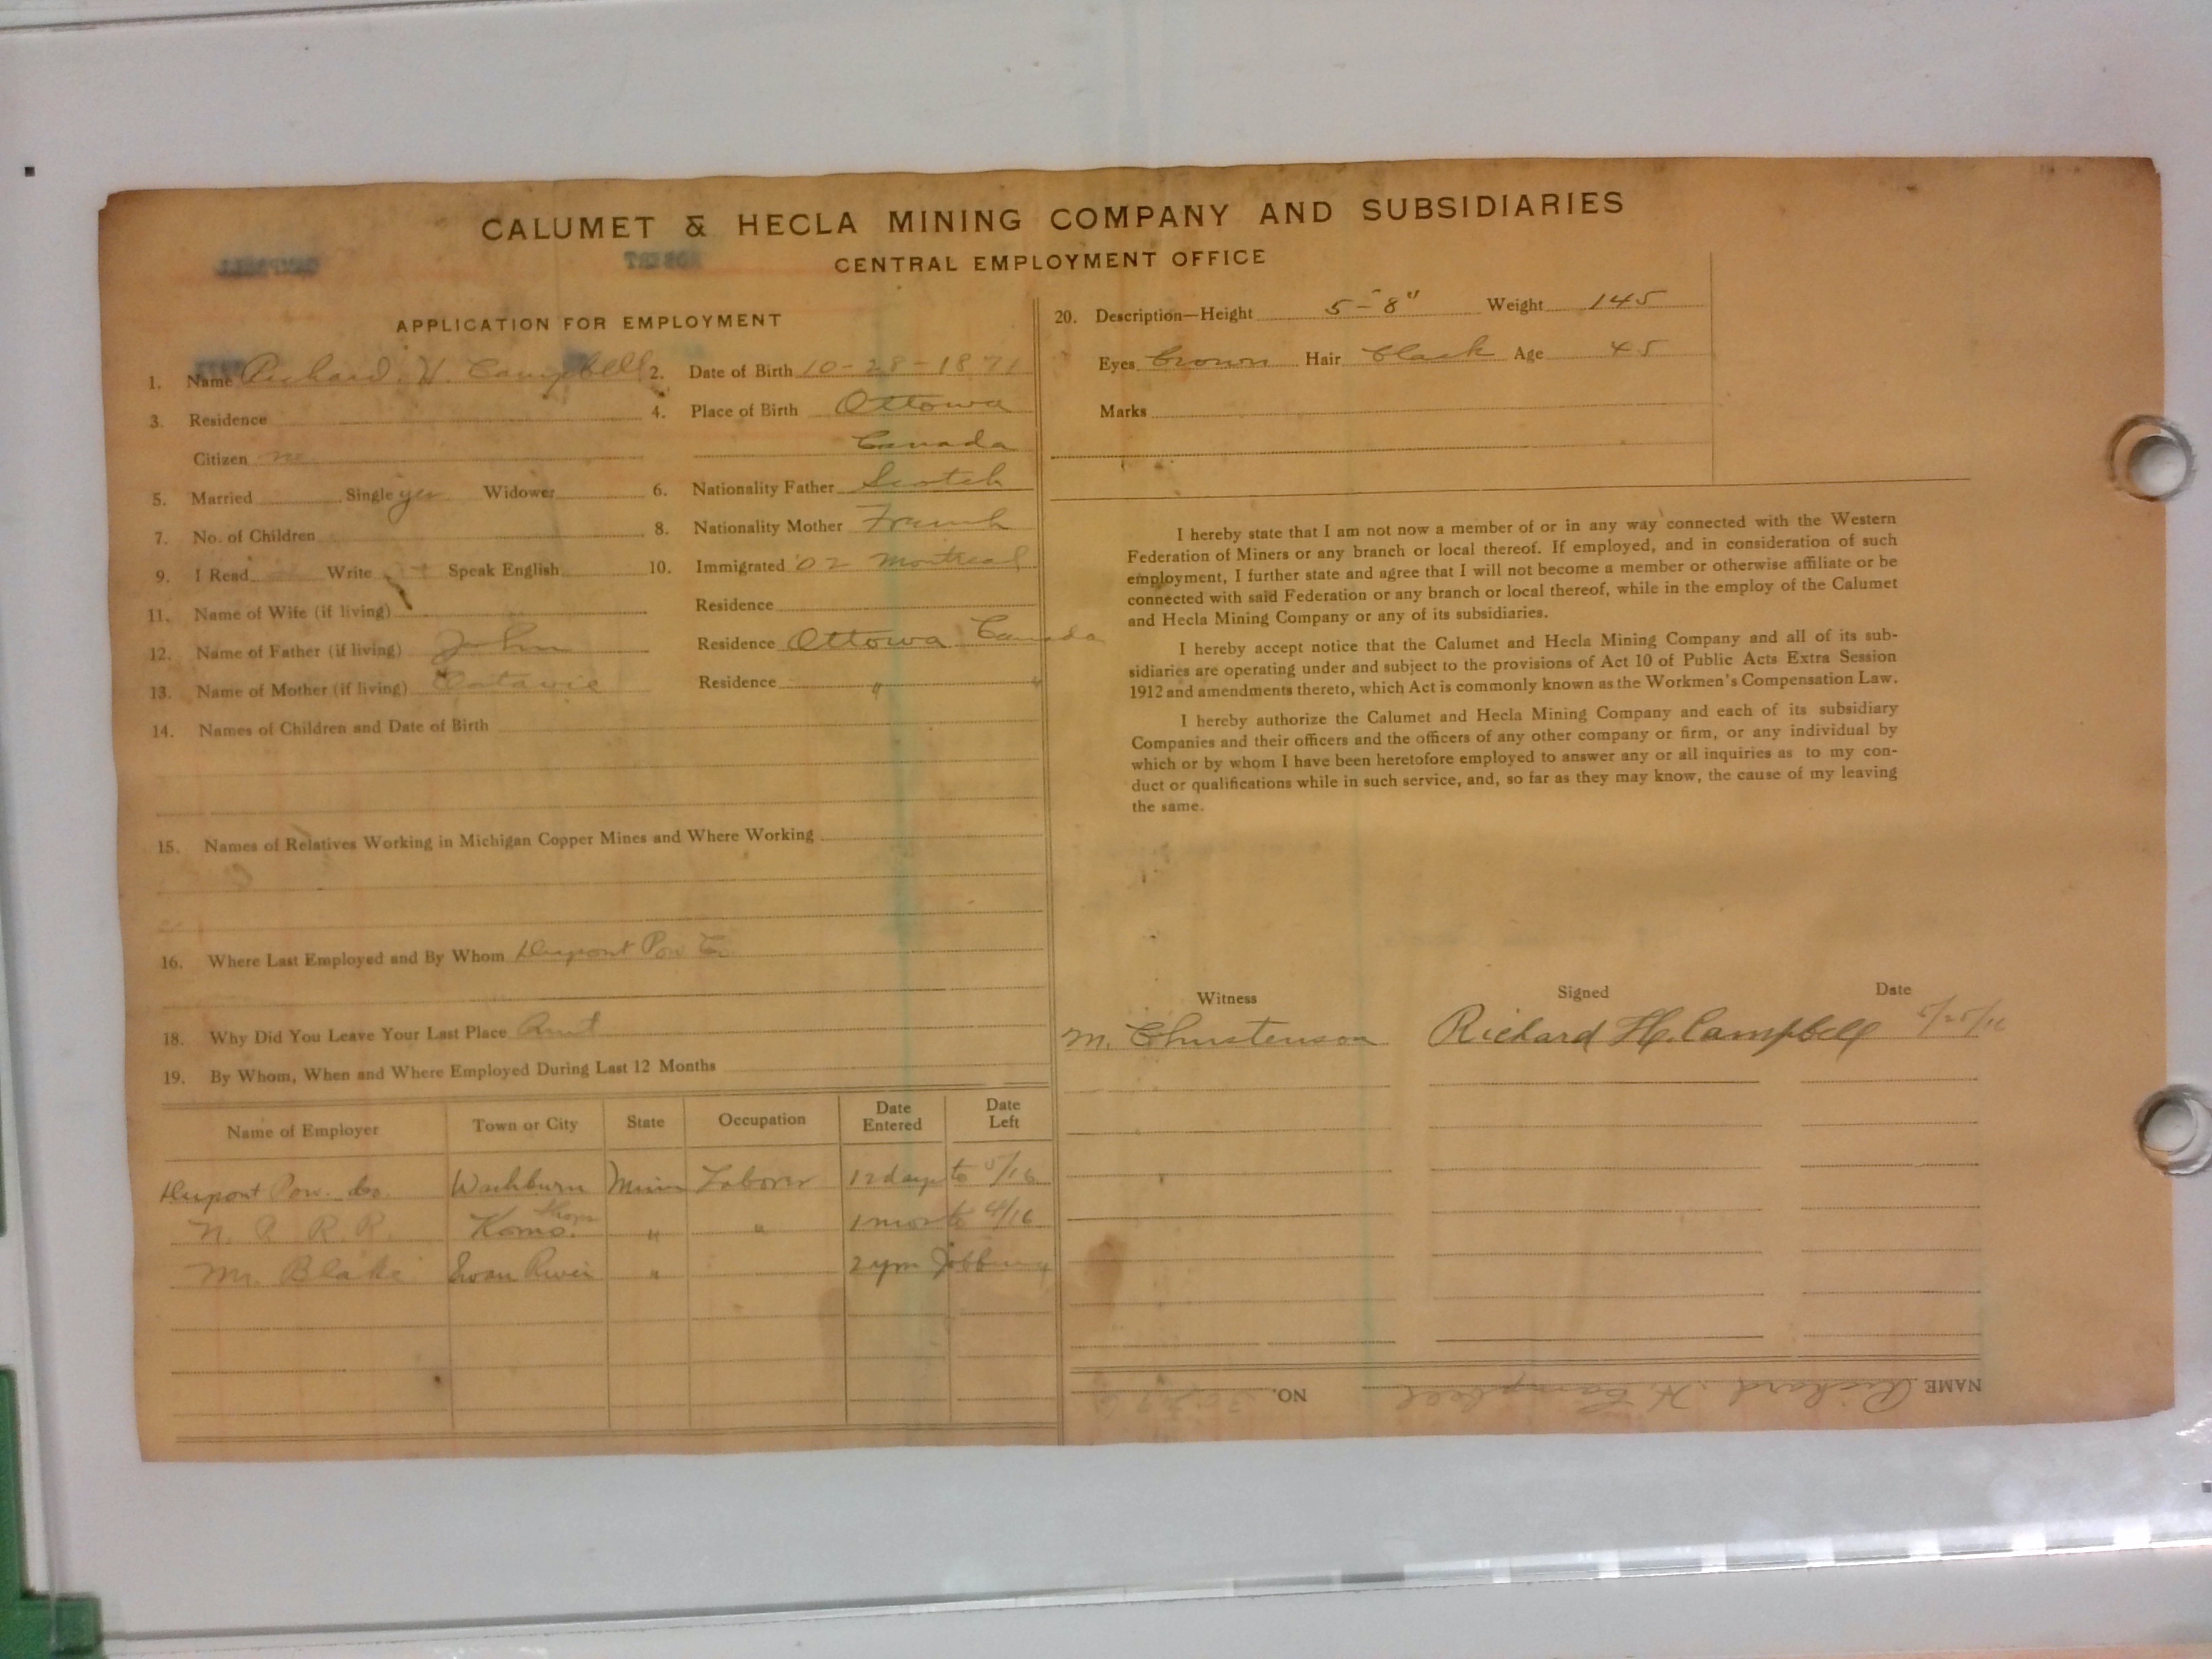 CALUMET & HECLA MINING COMPANY AND SUBSIDIARIES
CENTRAL EMPLOYMENT OFFICE
APPLICATION FOR EMPLOYMENT
1. Name Richard. H. Campbell 2. Date of Birth 10-28-1871
3. Residence 4. Place of Birth Ottowa
Citizen no Canada
5. Married Single yes Widower 6. Nationality Father Scotch
7. No. of Children 8. Nationality Mother French
9. I Read Write Speak English 10. Immigrated '02 Montreal
11. Name of Wife (if living) Residence
12. Name of Father (if living) John Residence Ottowa Canada
13. Name of Mother (if living) Residence " "
14. Names of Children and Date of Birth
15. Names of Relatives Working in Michigan Copper Mines and Where Working
16. Where Last Employed and By Whom Dupont Pow Co.
18. Why Did You Leave Your Last Place Quit
19. By Whom, When and Where Employed During Last 12 Months
Name of Employer Town or City State Occupation Date Entered Date Left
Dupont Pow. Co. Washburn Minn Laborer 12 days to 5/16
N. P. R. R. Komo. Shops " " 1 mos to 4/16
Mr. Blake Swan River " 2 yrs Jobbing
20. Description—Height 5-8" Weight 145
Eyes brown Hair black Age 45
Marks
I hereby state that I am not now a member of or in any way connected with the Western
Federation of Miners or any branch or local thereof. If employed, and in consideration of such
employment, I further state and agree that I will not become a member or otherwise affiliate or be
connected with said Federation or any branch or local thereof, while in the employ of the Calumet
and Hecla Mining Company or any of its subsidiaries.
I hereby accept notice that the Calumet and Hecla Mining Company and all of its sub-
sidiaries are operating under and subject to the provisions of Act 10 of Public Acts Extra Session
1912 and amendments thereto, which Act is commonly known as the Workmen's Compensation Law.
I hereby authorize the Calumet and Hecla Mining Company and each of its subsidiary
Companies and their officers and the officers of any other company or firm, or any individual by
which or by whom I have been heretofore employed to answer any or all inquiries as to my con-
duct or qualifications while in such service, and, so far as they may know, the cause of my leaving
the same.
Witness Signed Date
M. Christenson Richard H. Campbell
NAME Richard H. Campbell NO.